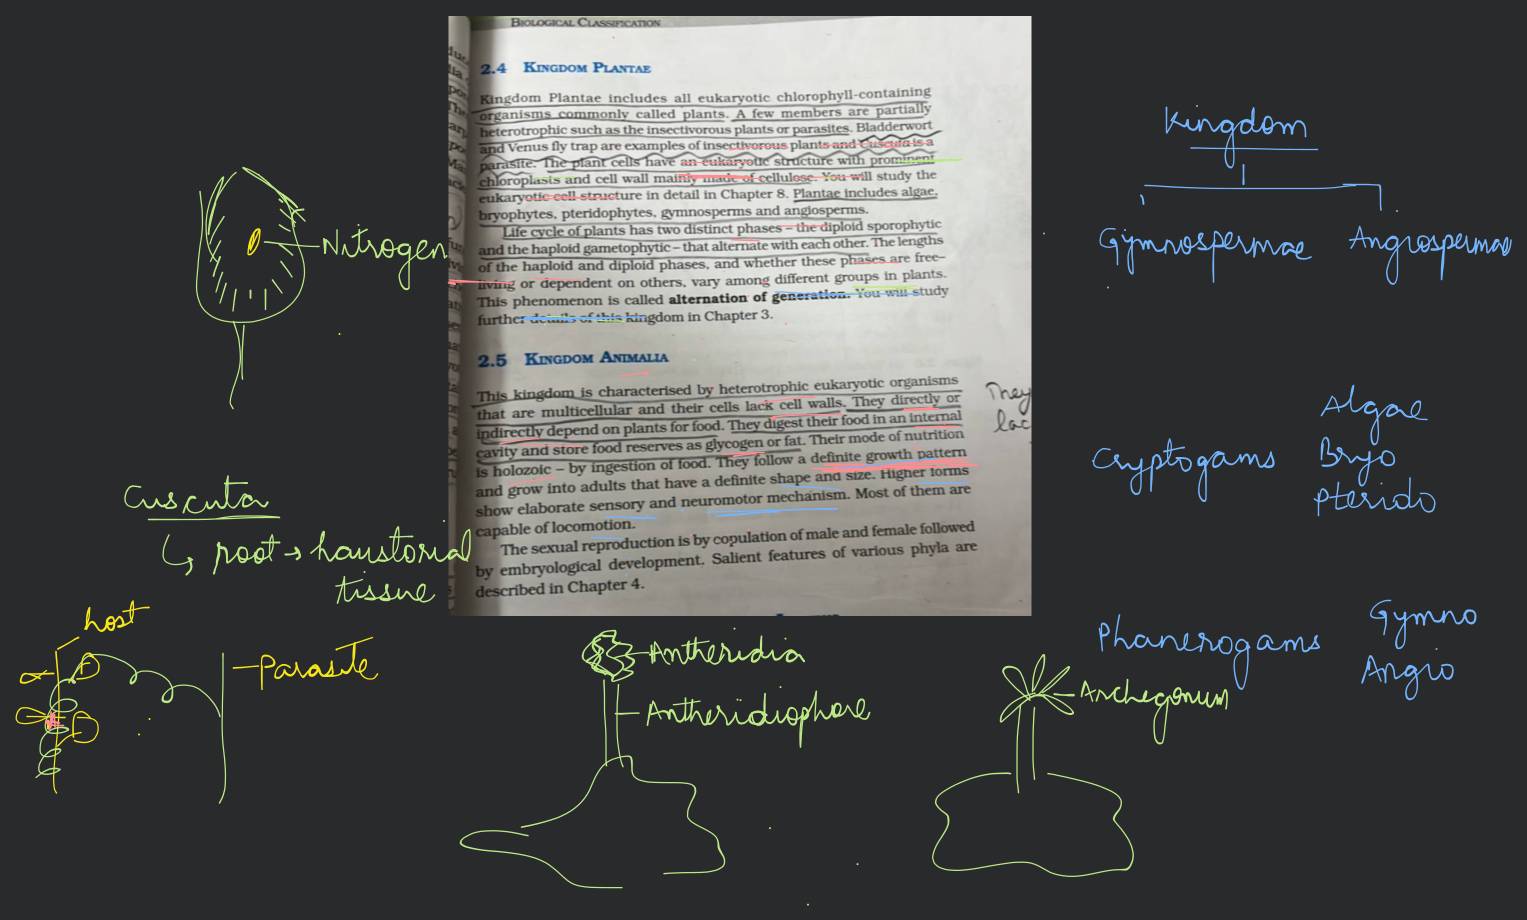 BIOLOGICAL CLASSIFICATION
2.4 KINGDOM PLANTAE
Kingdom Plantae includes all eukaryotic chlorophyll-containing
organisms commonly called plants. A few members are partially
heterotrophic such as the insectivorous plants or parasites. Bladderwort
and Venus fly trap are examples of insectivorous plants and Cuscuta is a
parasite. The plant cells have an eukaryotic structure with prominent
chloroplasts and cell wall mainly made of cellulose. You will study the
eukaryotic cell structure in detail in Chapter 8. Plantae includes algae,
bryophytes, pteridophytes, gymnosperms and angiosperms.
Life cycle of plants has two distinct phases – the diploid sporophytic
and the haploid gametophytic – that alternate with each other. The lengths
of the haploid and diploid phases, and whether these phases are free–
living or dependent on others, vary among different groups in plants.
This phenomenon is called alternation of generation. You will study
further details of this kingdom in Chapter 3.
2.5 KINGDOM ANIMALIA
This kingdom is characterised by heterotrophic eukaryotic organisms
that are multicellular and their cells lack cell walls. They directly or
indirectly depend on plants for food. They digest their food in an internal
cavity and store food reserves as glycogen or fat. Their mode of nutrition
is holozoic – by ingestion of food. They follow a definite growth pattern
and grow into adults that have a definite shape and size. Higher forms
show elaborate sensory and neuromotor mechanism. Most of them are
capable of locomotion.
The sexual reproduction is by copulation of male and female followed
by embryological development. Salient features of various phyla are
described in Chapter 4.
They
lac
Nitrogen
Cuscuta
↳ root → haustorial
tissue
host
Parasite
Antheridia
Antheridiophore
Archegonium
Kingdom
Gymnospermae Angiospermae
Cryptogams
Algae
Bryo
Pterido
Phanerogams
Gymno
Angio